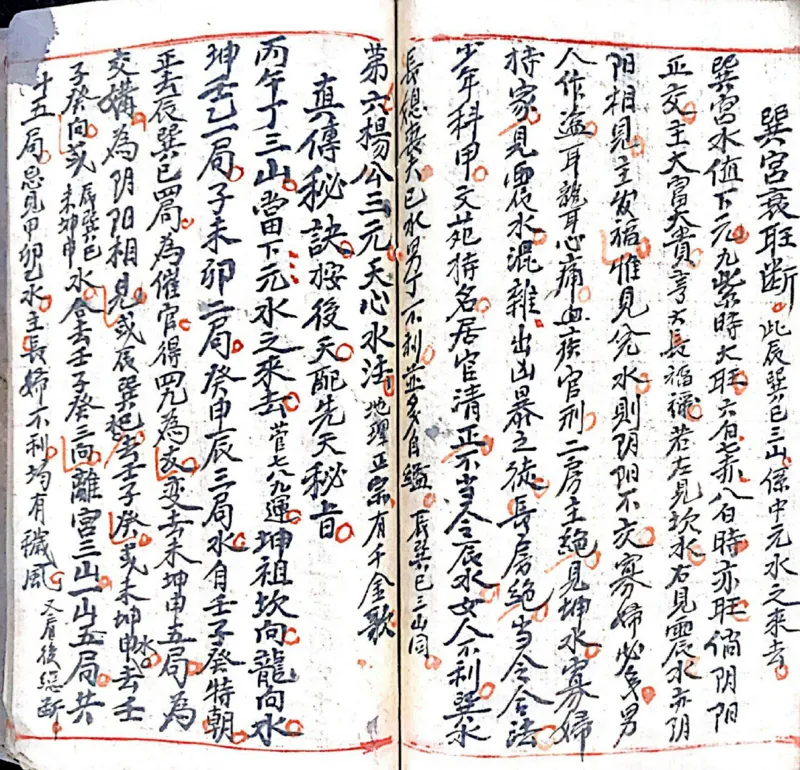 巽宮衰旺断 此辰巽巳三山係中元水之來去
巽宮水值下元九紫時大旺六白七赤八白時亦旺倘阴阳
正交主大富大貴寿大長福祿若左見坎水右見震水亦阴
阳相見主发福惟見兌水則阴阳不交寡婦必多男
人作盗耳聾耳心痛血疾官刑二房主絕見坤水寡婦
持家見震水混雜出凶暴之徒長房絕当令合法
少年科甲文苑持名居官清正不当令辰水女人不利巽水
長媳喪夫巳水男丁不利並多自縊 辰巽巳三山同
第六楊公三元天心水法 地理正宗有千金歌
真傳秘訣按後天配先天秘旨
丙午丁三山當下元水之來去 管七八九運 坤祖坎向龍向水
坤壬乙一局子未卯二局癸申辰三局水自壬子癸特朝
正去辰巽巳四局為催官得四九為友变去未坤申五局為
交媾為阴阳相見或辰巽巳去壬子癸或未坤申水去壬
子癸向或 辰巽巳 未坤申 水合去壬子癸三向離宮三山一山五局共
十五局忌見甲卯乙水主長婦不利均有穢風 又看後總断